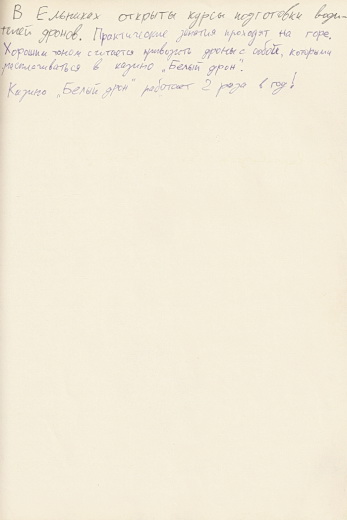 В Ельниках открыты курсы подготовки води-
телей дронов. Практические занятия проходят на горе.
Хорошим тоном считается привозить дроны с собой, которыми
расплачиваться в казино „Белый дрон".
Казино „Белый дрон" работает 2 раза в год!